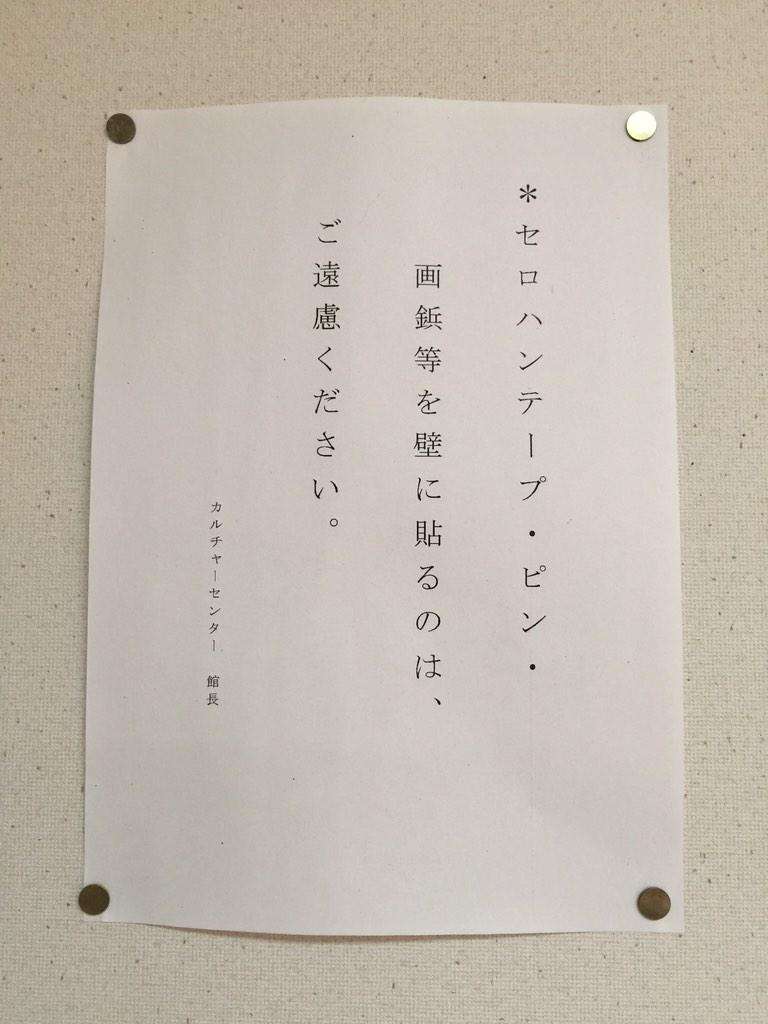 ＊セロハンテープ・ピン・
画鋲等を壁に貼るのは、
ご遠慮ください。
カルチャーセンター　館長